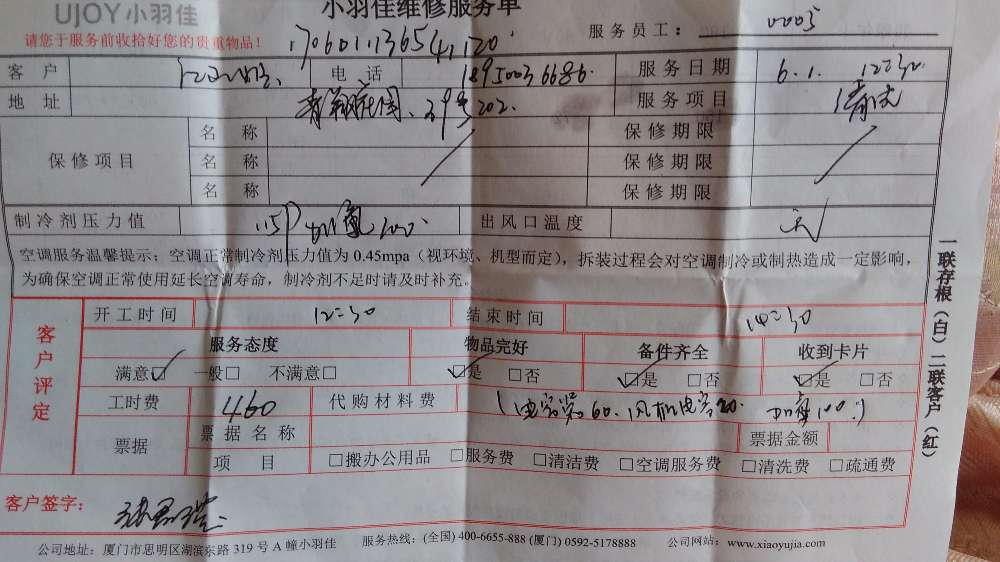 UJOY小羽佳
小羽佳维修服务单
请您于服务前收拾好您的贵重物品！
服务员工： 0005
客 户
电 话 18950036686.
服务日期 6.1. 12=30
地 址 202.
服务项目 清洗
保修项目
名 称 保修期限
名 称 保修期限
名 称 保修期限
制冷剂压力值
出风口温度
空调服务温馨提示：空调正常制冷剂压力值为 0.45mpa（视环境、机型而定），拆装过程会对空调制冷或制热造成一定影响，
为确保空调正常使用延长空调寿命，制冷剂不足时请及时补充。
客户评定
开工时间 12=30 结束时间 14=30
服务态度 物品完好 备件齐全 收到卡片
满意☑ 一般□ 不满意□ ☑是 □否 ☑是 □否 ☑是 □否
工时费 460 代购材料费
票据 票据名称 票据金额
项 目 □搬办公用品 □服务费 □清洁费 □空调服务费 □清洗费 □疏通费
客户签字：
公司地址：厦门市思明区湖滨东路 319 号 A 幢小羽佳 服务热线：(全国) 400-6655-888 (厦门) 0592-5178888 公司网站：www.xiaoyujia.com
一联存根（白）二联客户（红）